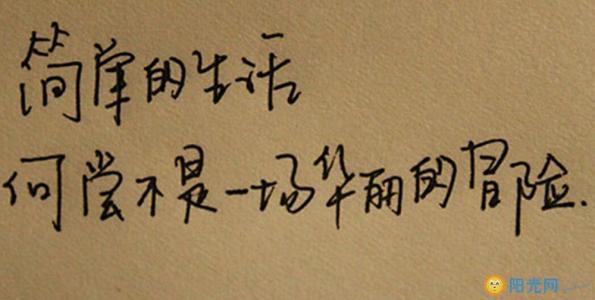 简单的生活
何尝不是一场华丽的冒险.
阳光网